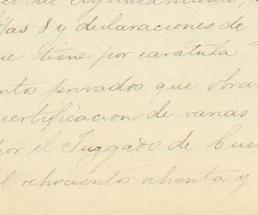 y declaraciones de
tiene por carátula
privados que obra
certificacion de varias
por el Juzgado de Cue
ochocientos ochenta y